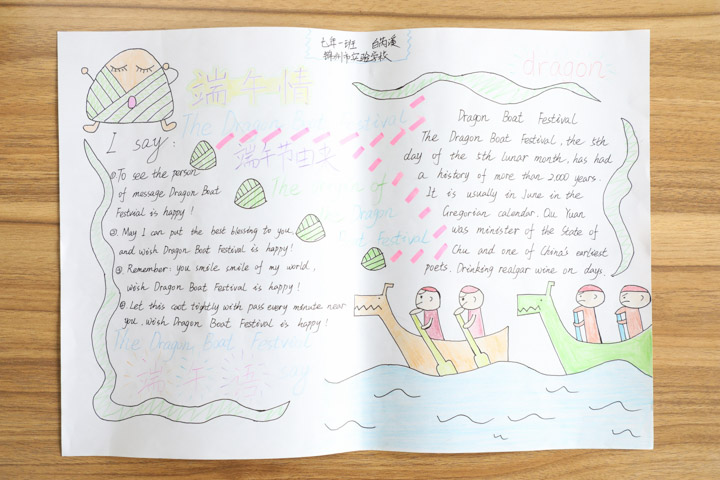 七年一班
锦州市实验学校
端午情
dragon
The Dragon Boat Festival
端午节由来
The
of
the Dragon
Boat Festival
I say:
①To see the person
of message Dragon Boat
Festvial is happy!
②. May I can put the best blessing to you,
and wish Dragon Boat Festival is happy!
③. Remember: you smile smile of my world,
wish Dragon Boat Festival is happy!
④. Let this coot tightly with pass every minute near
you, wish Dragon Boat Festival is happy!
The Dragon Boat Festival
Dragon Boat Festival
The Dragon Boat Festival, the 5th
day of the 5th lunar month, has had
a history of more than 2,000 years.
It is usually in June in the
Gregorian calendar. Qu Yuan
was minister of the State of
Chu and one of China's earliest
poets. Drinking realgar wine on days.